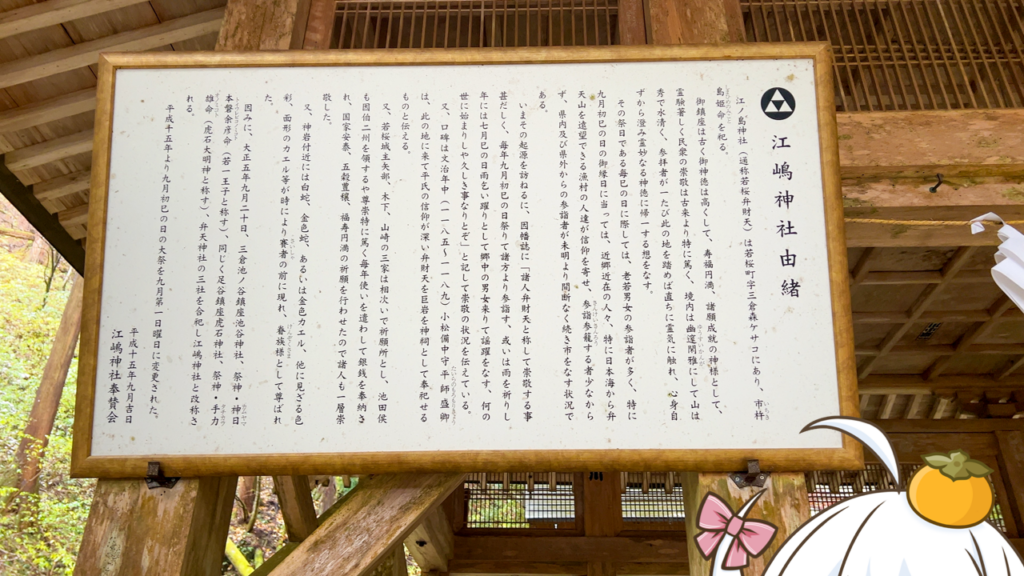 江嶋神社由緒
江ノ島神社（通称若桜弁財天）は若桜町字三倉森ケサコにあり、市杵
島姫命を祀る。
御鎮座は古く御神徳は高くして、寿福円満、諸願成就の神様として、
霊験著しく民衆の崇敬は古来より特に篤く、境内は幽邃閑雅にして山は
秀で水清く、参拝者が一たび此の地を踏めば直ちに霊気に触れ、心身自
ずから澄み霊妙なる神徳に帰一する想をなす。
その祭日である毎巳の日に際しては、老若男女の参詣者が多く、特に
九月初巳の日の御縁日に当っては、近郷近在の人々、特に日本海から弁
天山を遠望できる漁村の人達が信仰を寄せ、参詣参籠する者少なから
ず、県内及び県外からの参詣者が未明より間断なく続き市をなす状況で
ある。
いまその起源を訪ねるに、因幡誌に「諸人弁財天と称して崇敬する事
甚だしく、毎年九月初巳の日祭りて諸方より参詣す、或いは雨を祈りし
年には七月巳の日雨乞い躍りとして郷中の男女来りて謡躍をなす、何の
世に始まりしや久しき事なりとぞ」と記して崇敬の状況を伝えている。
又、口碑は文治年中（一一八五～一一八九）小松備中守平師盛卿
は、此の地に来て平氏の信仰が深い弁財天を巨岩を神祠として奉祀せる
ものと伝える。
又、若桜城主矢部、木下、山崎の三家は相次いで祈願所とし、池田侯
も因伯二州を領するや尊崇特に篤く毎年使いを遣わして銀銭を奉納さ
れ、国家安泰、五穀豊穣、福寿円満の祈願を行わせたので諸人も一層崇
敬した。
又、神岩付近には白蛇、金色蛇、あるいは金色カエル、他に見ざる色
彩、面形のカエル等が時により賽者の前に現れ、眷族様として尊ばれ
た。
因みに、大正五年九月二十日、三倉池ノ谷鎮座池谷神社、祭神・神日
本磐余彦命（若一王子と称す）、同じく足谷鎮座虎石神社、祭神・手力
雄命（虎石大明神と称す）、弁天神社の三社を合祀し江嶋神社と改称さ
れる。
平成十五年より九月初巳の日の大祭を九月第一日曜日に変更された。
平成十五年九月吉日
江嶋神社奉賛会